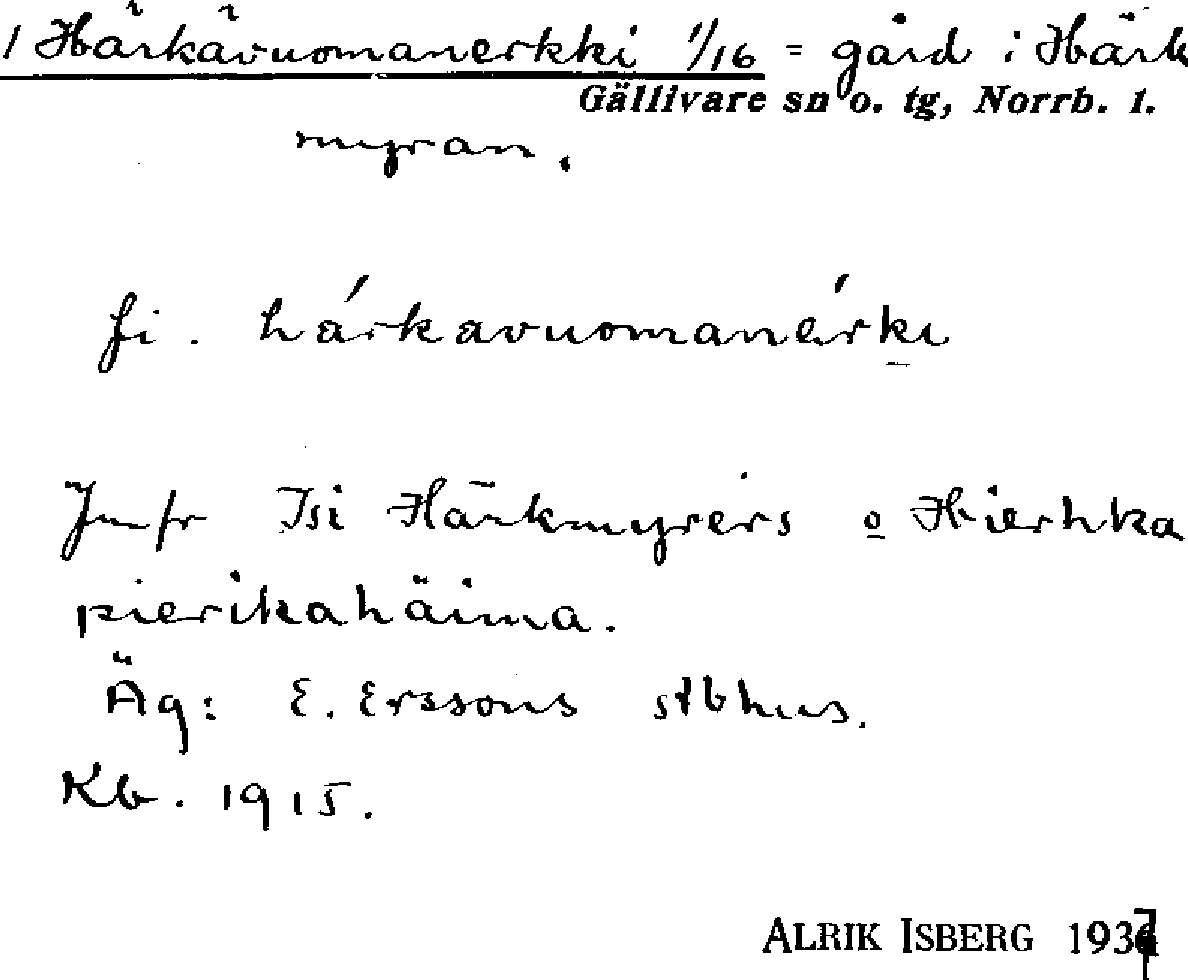 1 Härkävuomanerkki 1/16 = gård i Härk
Gällivare sn o. tg, Norrb. l.
myran.
fi. hárkavuomanérki
Jmfr Isi Härkmyrers o Hierkka
pierikahäima.
Äg: E. Erssons stbhus.
Kb. 1915.
ALRIK ISBERG